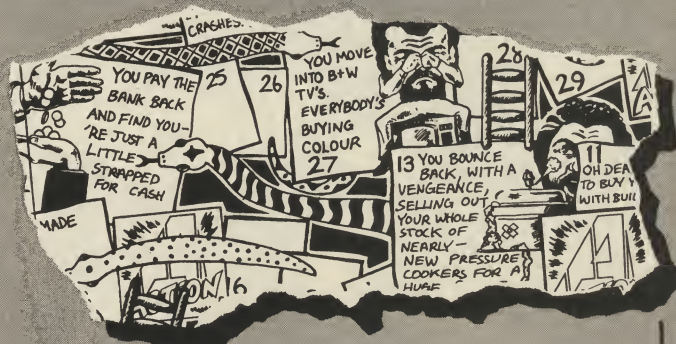 CRASHES.
YOU PAY THE
BANK BACK
AND FIND YOU-
'RE JUST A
LITTLE
STRAPPED
FOR CASH
25
26
YOU MOVE
INTO B+W
TV'S.
EVERYBODY'S
BUYING
COLOUR
27
28
29
MADE
16
13 YOU BOUNCE
BACK, WITH A
VENGEANCE,
SELLING OUT
YOUR WHOLE
STOCK OF
NEARLY-
NEW PRESSURE
COOKERS FOR A
HUGE
11
OH DEA
TO BUY Y
WITH BUIL